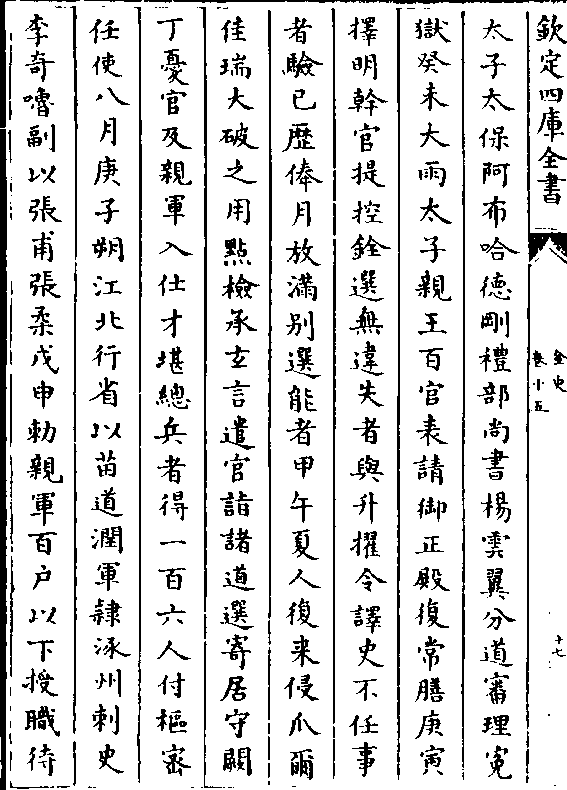 欽定四庫全書
金史
卷十五
十七
太子太保阿布哈德剛禮部尚書楊雲翼分道審理寃
獄癸未大雨太子親王百官表請御正殿復常膳庚寅
擇明幹官提控銓選無違失者與升擢令譯史不任事
者驗已歷俸月放滿別選能者甲午夏人復来侵爪爾
佳瑞大破之用點檢承玄言遣官詣諸道選寄居守闕
丁憂官及親軍入仕才堪總兵者得一百六人付樞密
任使八月庚子朔江北行省以苗道潤軍隸涿州刺史
李奇嚕副以張甫張柔戊申勅親軍百户以下授職待